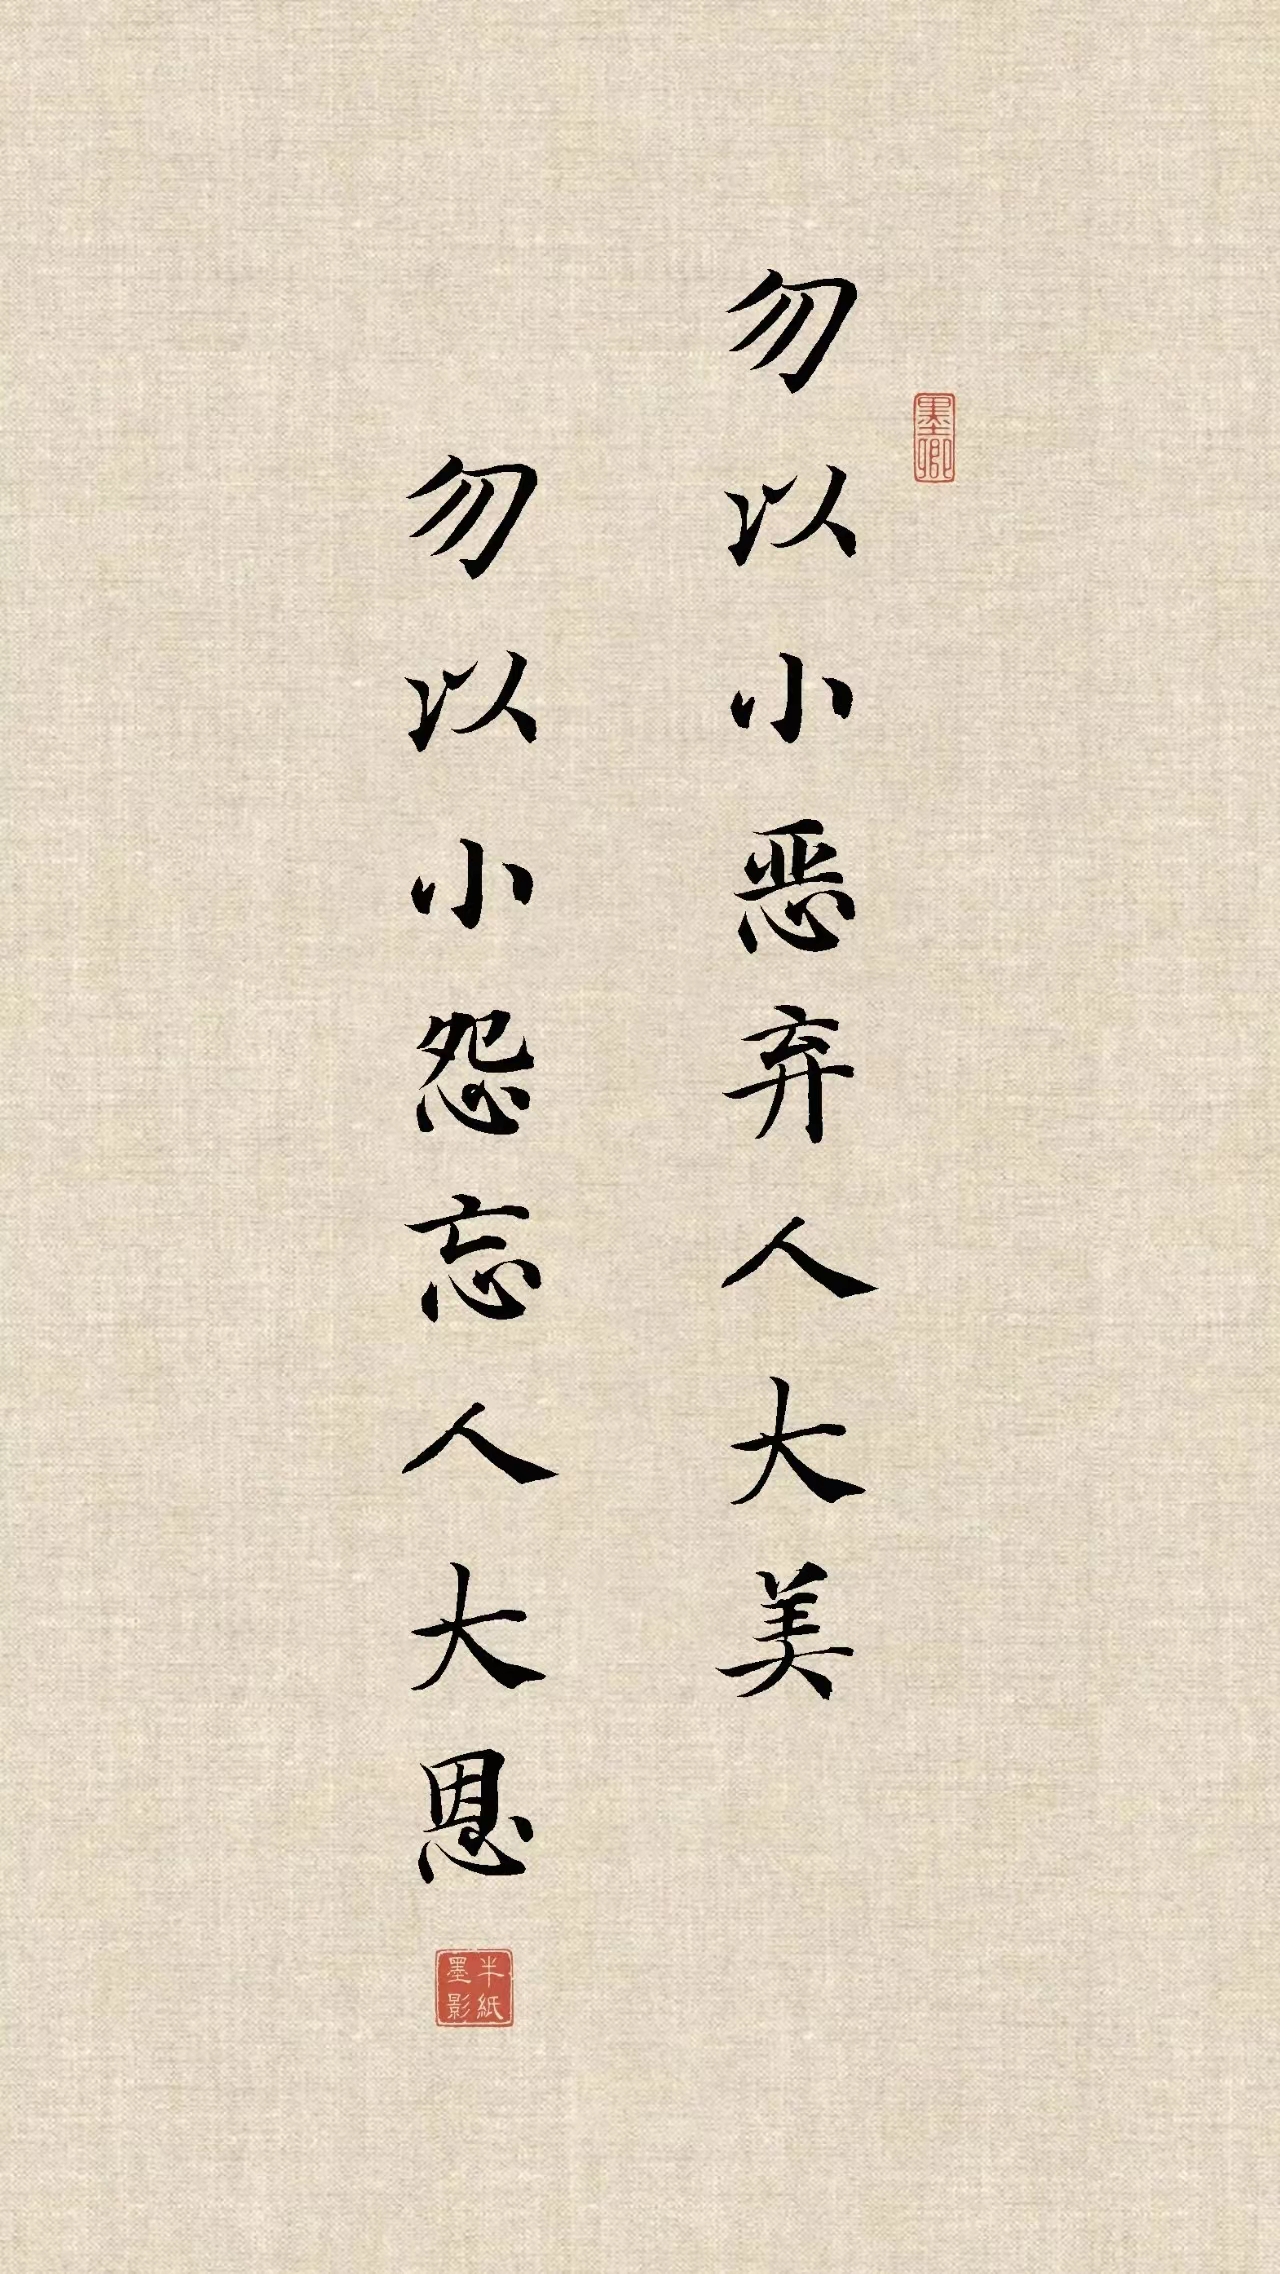 勿以小恶弃人大美
勿以小怨忘人大恩
墨卿
半紙
墨影